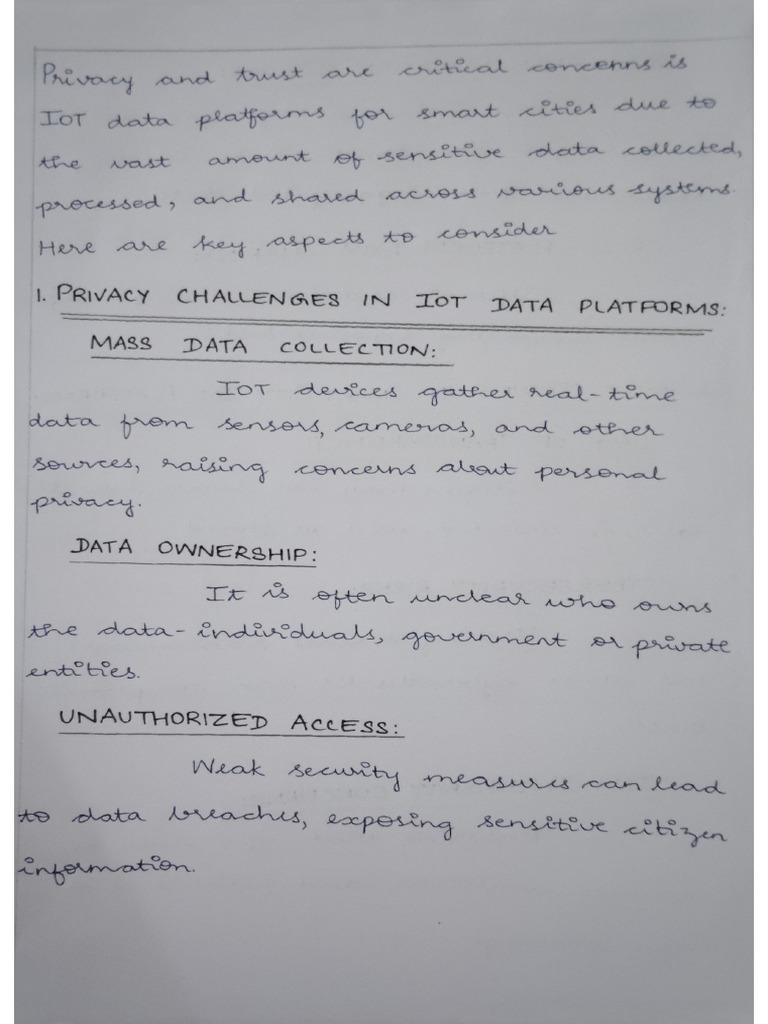 Privacy and trust are critical concerns is
IOT data platforms for smart cities due to
the vast amount of sensitive data collected,
processed, and shared across various systems.
Here are key aspects to consider
1. PRIVACY CHALLENGES IN IOT DATA PLATFORMS:
MASS DATA COLLECTION:
IOT devices gather real-time
data from sensors, cameras, and other
sources, raising concerns about personal
privacy.
DATA OWNERSHIP:
It is often unclear who owns
the data-individuals, government or private
entities.
UNAUTHORIZED ACCESS:
Weak security measures can lead
to data breaches, exposing sensitive citizen
information.